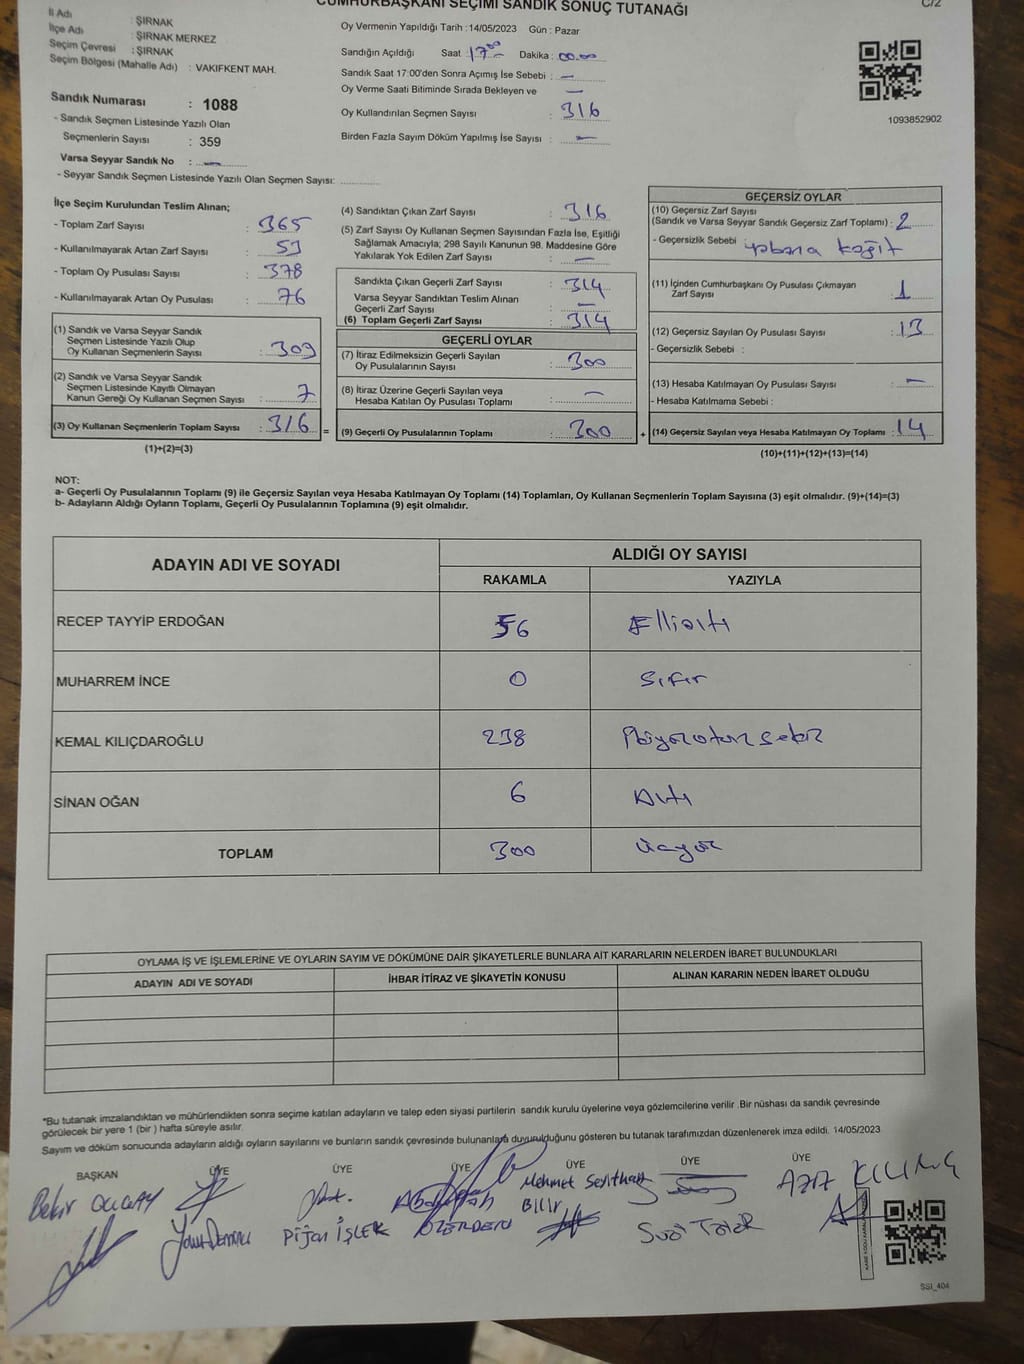 CUMHURBAŞKANI SEÇİMİ SANDIK SONUÇ TUTANAĞI
C/2
İl Adı : ŞIRNAK
İlçe Adı : ŞIRNAK MERKEZ
Seçim Çevresi : ŞIRNAK
Seçim Bölgesi (Mahalle Adı) : VAKIFKENT MAH.
Sandık Numarası : 1088
- Sandık Seçmen Listesinde Yazılı Olan
Seçmenlerin Sayısı : 359
Varsa Seyyar Sandık No : —
- Seyyar Sandık Seçmen Listesinde Yazılı Olan Seçmen Sayısı:
Oy Vermenin Yapıldığı Tarih : 14/05/2023 Gün : Pazar
Sandığın Açıldığı Saat : 17:00 Dakika : 00.00
Sandık Saat 17:00'den Sonra Açımış İse Sebebi : —
Oy Verme Saati Bitiminde Sırada Bekleyen ve —
Oy Kullandırılan Seçmen Sayısı : 316
Birden Fazla Sayım Döküm Yapılmış İse Sayısı : —
1093852902
İlçe Seçim Kurulundan Teslim Alınan;
- Toplam Zarf Sayısı : 365
- Kullanılmayarak Artan Zarf Sayısı : 53
- Toplam Oy Pusulası Sayısı : 378
- Kullanılmayarak Artan Oy Pusulası : 76
(1) Sandık ve Varsa Seyyar Sandık
Seçmen Listesinde Yazılı Olup
Oy Kullanan Seçmenlerin Sayısı : 309
(2) Sandık ve Varsa Seyyar Sandık
Seçmen Listesinde Kayıtlı Olmayan
Kanun Gereği Oy Kullanan Seçmen Sayısı : 7
(3) Oy Kullanan Seçmenlerin Toplam Sayısı : 316 =
(1)+(2)=(3)
(4) Sandıktan Çıkan Zarf Sayısı : 316
(5) Zarf Sayısı Oy Kullanan Seçmen Sayısından Fazla İse, Eşitliği
Sağlamak Amacıyla; 298 Sayılı Kanunun 98. Maddesine Göre
Yakılarak Yok Edilen Zarf Sayısı : —
Sandıkta Çıkan Geçerli Zarf Sayısı : 314
Varsa Seyyar Sandıktan Teslim Alınan
Geçerli Zarf Sayısı : —
(6) Toplam Geçerli Zarf Sayısı : 314
GEÇERLİ OYLAR
(7) İtiraz Edilmeksizin Geçerli Sayılan
Oy Pusulalarının Sayısı : 300
(8) İtiraz Üzerine Geçerli Sayılan veya
Hesaba Katılan Oy Pusulası Toplamı : —
(9) Geçerli Oy Pusulalarının Toplamı : 300 +
GEÇERSİZ OYLAR
(10) Geçersiz Zarf Sayısı
(Sandık ve Varsa Seyyar Sandık Geçersiz Zarf Toplamı) : 2
- Geçersizlik Sebebi : kağıt
(11) İçinden Cumhurbaşkanı Oy Pusulası Çıkmayan
Zarf Sayısı : 1
(12) Geçersiz Sayılan Oy Pusulası Sayısı : 13
- Geçersizlik Sebebi :
(13) Hesaba Katılmayan Oy Pusulası Sayısı : —
- Hesaba Katılmama Sebebi :
(14) Geçersiz Sayılan veya Hesaba Katılmayan Oy Toplamı : 14
(10)+(11)+(12)+(13)=(14)
NOT:
a- Geçerli Oy Pusulalarının Toplamı (9) ile Geçersiz Sayılan veya Hesaba Katılmayan Oy Toplamı (14) Toplamları, Oy Kullanan Seçmenlerin Toplam Sayısına (3) eşit olmalıdır. (9)+(14)=(3)
b- Adayların Aldığı Oyların Toplamı, Geçerli Oy Pusulalarının Toplamına (9) eşit olmalıdır.
ADAYIN ADI VE SOYADI
ALDIĞI OY SAYISI
RAKAMLA YAZIYLA
RECEP TAYYİP ERDOĞAN 56 Ellialtı
MUHARREM İNCE 0 Sıfır
KEMAL KILIÇDAROĞLU 238
SİNAN OĞAN 6 Altı
TOPLAM 300 üçyüz
OYLAMA İŞ VE İŞLEMLERİNE VE OYLARIN SAYIM VE DÖKÜMÜNE DAİR ŞİKAYETLERLE BUNLARA AİT KARARLARIN NELERDEN İBARET BULUNDUKLARI
ADAYIN ADI VE SOYADI İHBAR İTİRAZ VE ŞİKAYETİN KONUSU ALINAN KARARIN NEDEN İBARET OLDUĞU
*Bu tutanak imzalandıktan ve mühürlendikten sonra seçime katılan adayların ve talep eden siyasi partilerin sandık kurulu üyelerine veya gözlemcilerine verilir .Bir nüshası da sandık çevresinde
görülecek bir yere 1 (bir ) hafta süreyle asılır.
Sayım ve döküm sonucunda adayların aldığı oyların sayılarını ve bunların sandık çevresinde bulunanlara duyurulduğunu gösteren bu tutanak tarafımızdan düzenlenerek imza edildi. 14/05/2023
BAŞKAN ÜYE ÜYE ÜYE ÜYE ÜYE ÜYE
Bekir
Pijan İŞLEK
Mehmet
BİLİR
Suat
AZİZ KILINÇ
SSİ_404